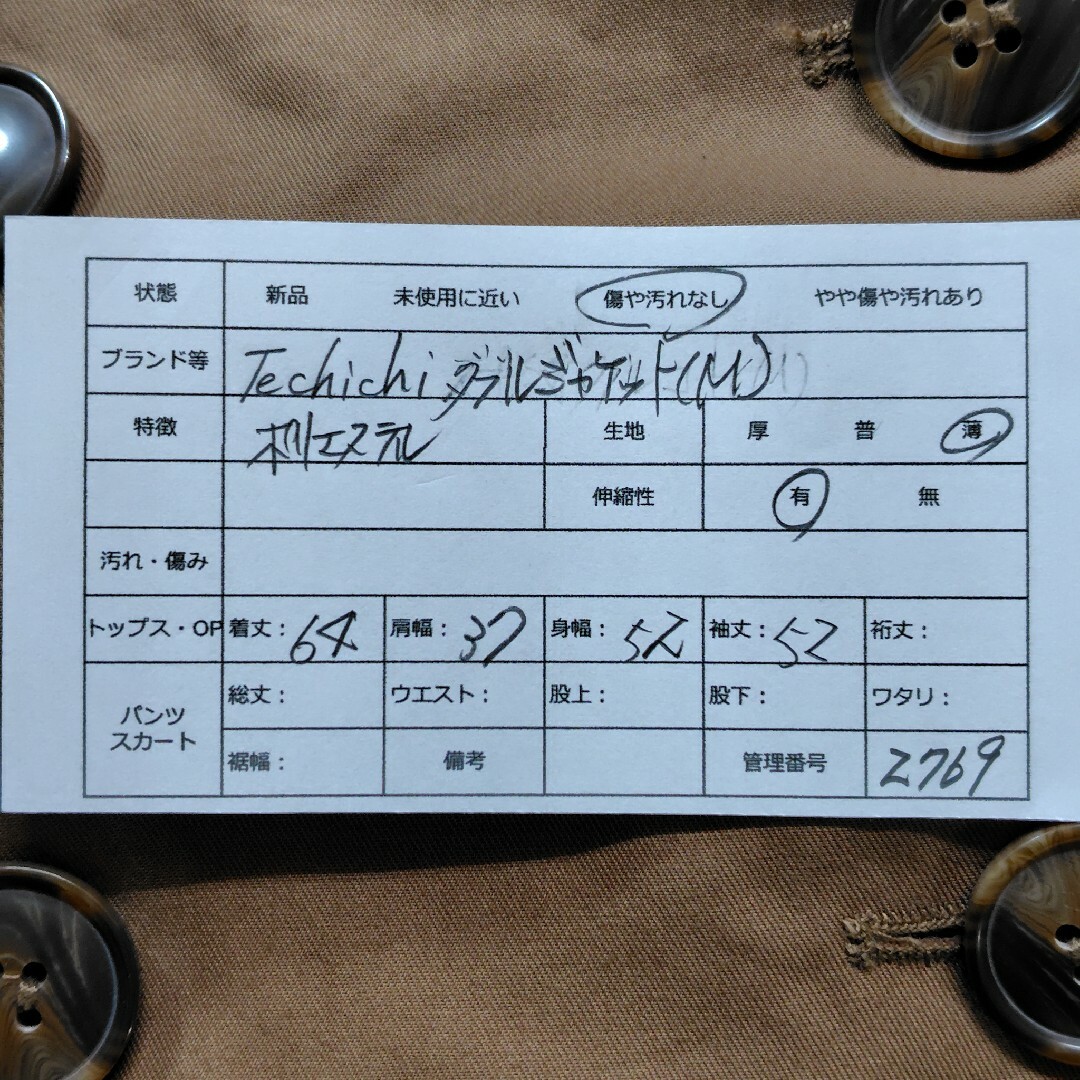 状態 新品 未使用に近い 傷や汚れなし やや傷や汚れあり
ブランド等 Techichi ダブルジャケット(M)
特徴 ポリエステル 生地 厚 普 薄
伸縮性 有 無
汚れ・傷み
トップス・OP 着丈：64 肩幅：37 身幅：52 袖丈：52 裄丈：
パンツ
スカート
総丈： ウエスト： 股上： 股下： ワタリ：
裾幅： 備考 管理番号 2769